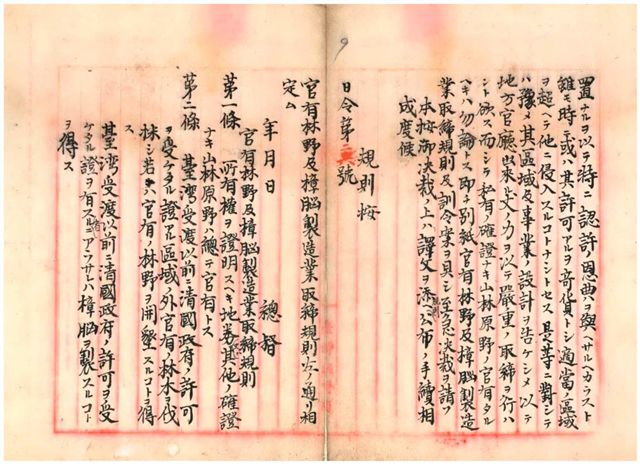 置ナルヲ以テ時ニ認許ノ恩典ハ與ヘサルヘカラスト
雖モ時ニ或ハ其許可アルヲ奇貨トシ適當ノ區域
ヲ超ヘテ他ニ侵入スルコトナシトセス具等ニ對シテ
ハ豫メ其區域及事業ノ設計ヲ告ケシメ以テ
地方官廳出來ル丈ノ力ヲ以テ嚴重ノ取締ヲ行ハ
ント欲ス而シテ私有ノ確證ナキ山林原野ノ官有タル
ヘキハ勿論トス即チ別紙官有林野及樟腦製造
業取締規則及訓令案ヲ具シ至急決裁ヲ請フ
本按御決裁ノ上ハ譯文ヲ添ヘ公布ノ手續相
成度候
規則按
日令第 號
官有林野及樟腦製造業取締規則左ノ通リ相
定ム
年月日
總督
官有林野及樟腦製造業取締規則
第一條 所有權ヲ證明スヘキ地券又ハ其他ノ確證
ナキ山林原野ハ總テ官有トス
第二條 臺灣受渡以前ニ清國政府ノ許可
ヲ受ケタル證アル區域ノ外官有ノ林木ヲ伐
採シ若クハ官有ノ林野ヲ開墾スルコトヲ得
ス
臺灣受渡以前ニ清國政府ノ許可ヲ受
ケタル證ヲ有スルニアラサレハ樟腦ヲ製スルコト
ヲ得ス